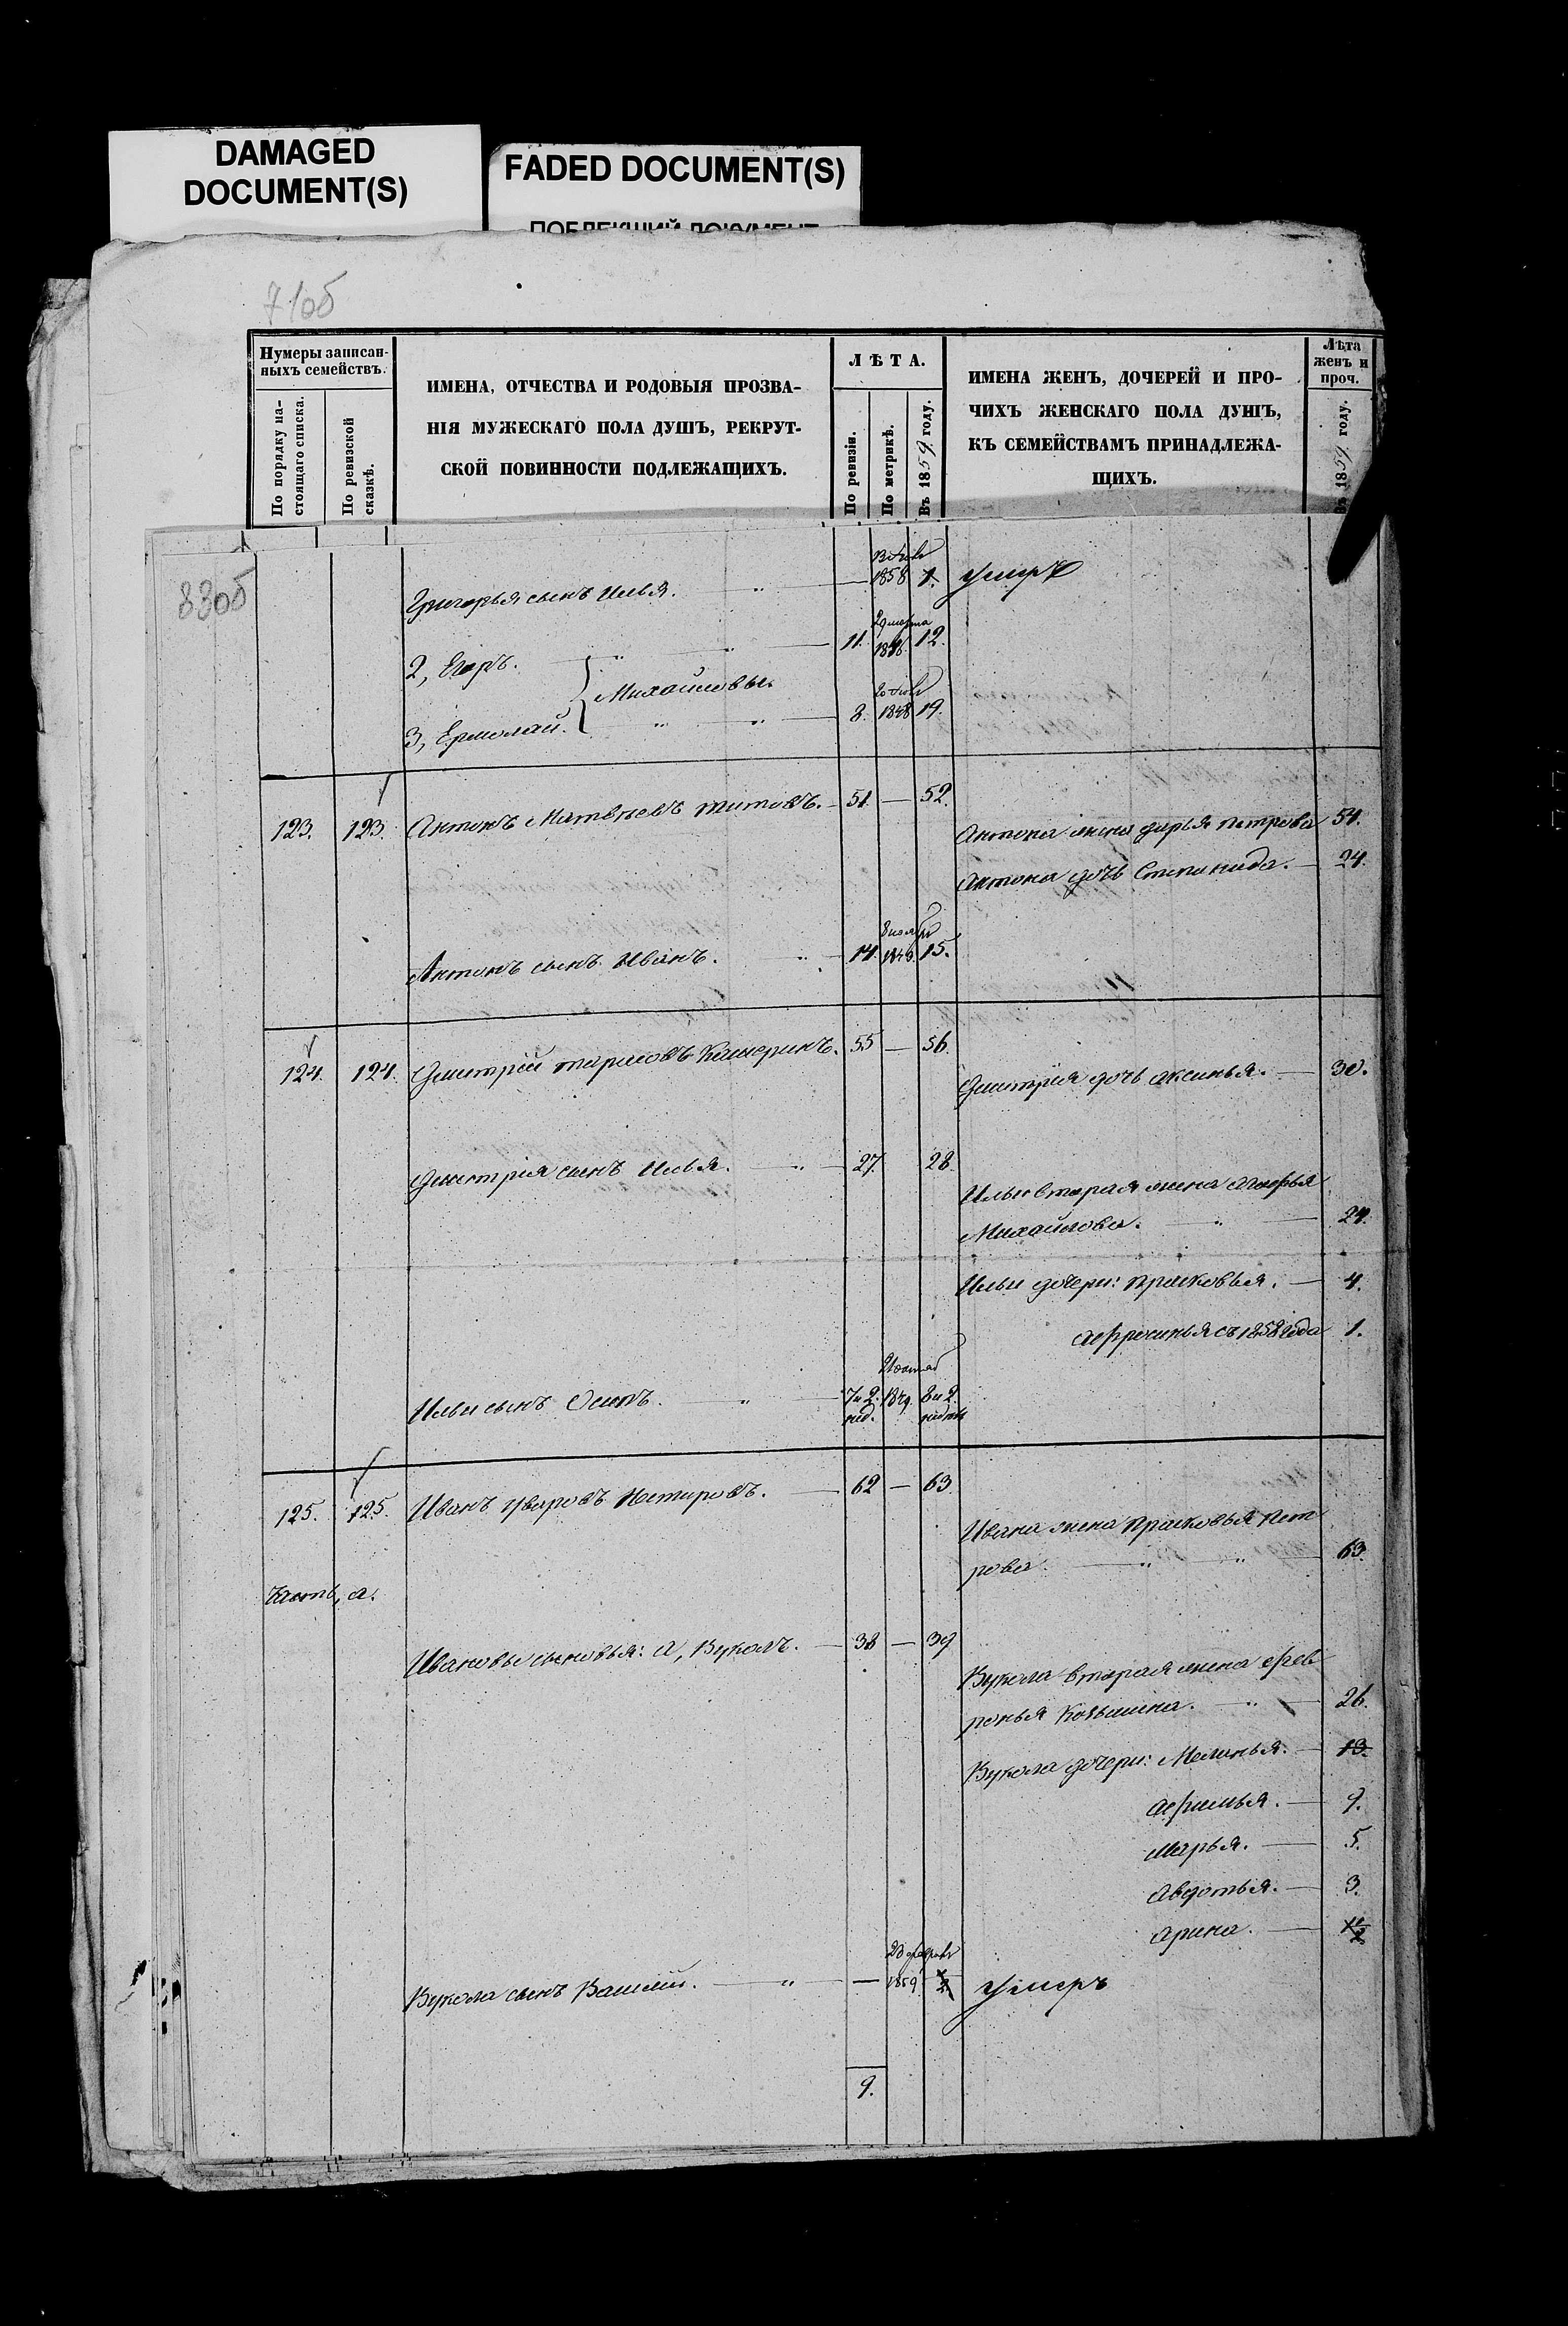 DAMAGED
DOCUMENT(S)
FADED DOCUMENT(S)
ПОБЛЕКШИЙ ДОКУМЕНТ
71об
Нумеры записан-
ныхъ семействъ.
По порядку на-
стоящаго списка.
По ревизской
сказкѣ.
ИМЕНА, ОТЧЕСТВА И РОДОВЫЯ ПРОЗВА-
НІЯ МУЖЕСКАГО ПОЛА ДУШЪ, РЕКРУТ-
СКОЙ ПОВИННОСТИ ПОДЛЕЖАЩИХЪ.
ЛѢТА.
По ревизіи.
По метрикѣ.
Въ 1859 году.
ИМЕНА ЖЕНЪ, ДОЧЕРЕЙ И ПРО-
ЧИХЪ ЖЕНСКАГО ПОЛА ДУШЪ,
КЪ СЕМЕЙСТВАМЪ ПРИНАДЛЕЖА-
ЩИХЪ.
Лѣта
женъ и
проч.
Въ 1859 году.
83об
Григорья сынъ Илья. " — 1858 1. умеръ
2, Егоръ. " " — 11. 12.
Михайловы.
3, Ермолай. " " — 8. 1848 19.
123. 123. Антонъ Матвѣевъ Титовъ. — 51. — 52.
Антона жена Дарья Петрова 54.
Антона дочь Степанида. — 24.
Антонъ сынъ Иванъ. " — 14. 15.
124. 124. Дмитрій Тарасовъ Кашеринъ. 55 — 56.
Дмитрія дочь Аксинья. — 30.
Дмитрія сынъ Илья. — " — 27. 28.
Ильи вторая жена Марья
Михайлова. " — 24.
Ильи дочери: Прасковья. — 4.
Афросинья съ 1858 года 1.
Ильи сынъ Осипъ. " — 7 и 2. 8 и 2.
нед.
125. 125. Иванъ Уваровъ — 62 — 63.
Ивана жена Прасковья Пет
рова. — " — " — 63.
Часть, а.
Ивановы сыновья: а, Вуколъ. — 38 — 39
Вукола вторая жена Фев
ронья Козьмина. — " — 26.
Вукола дочери: Меланья. — 13.
Афимья. — 9.
Марья. — 5.
Авдотья. — 3.
Арина. —
Вукола сынъ Василій. — " — — 1859 умеръ
9.